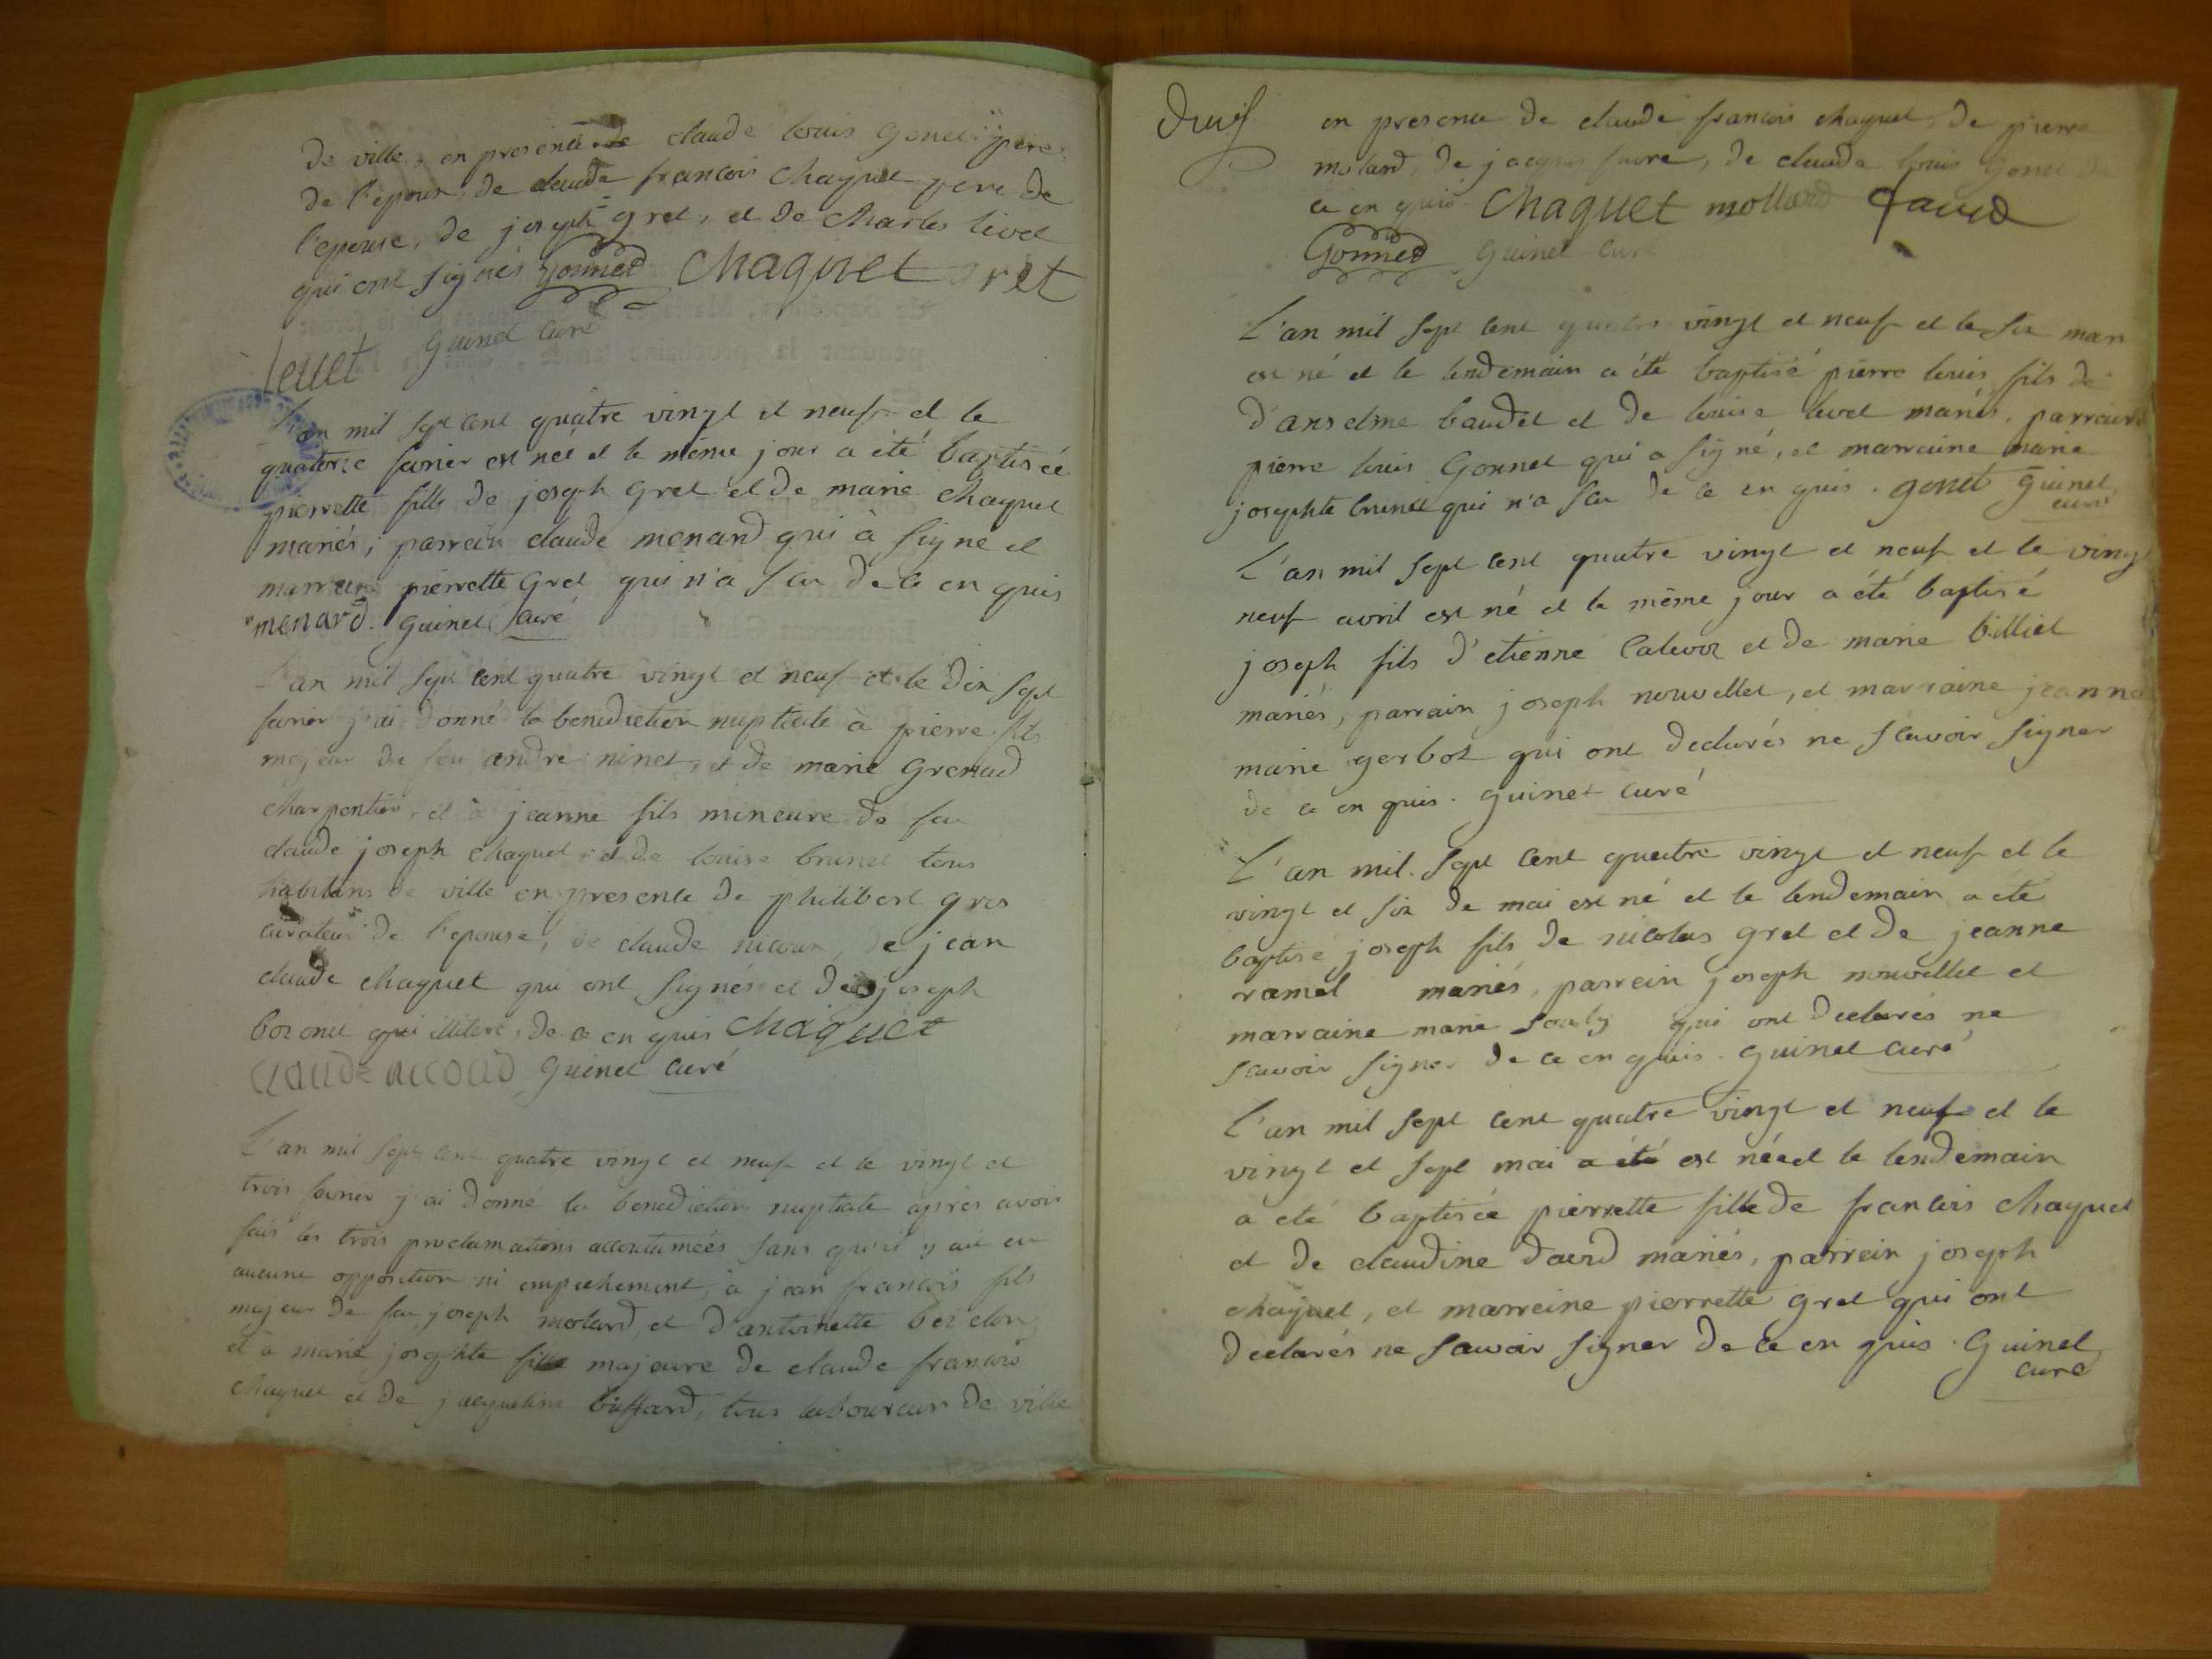 de ville, en presence de claude louis Gonet père
de l'epoux, de claude francois Chaquet pere de
l'epouse, de joseph gret, et de Charles livet
qui ont signés Gonned Chaquet gret
levet guinet curé
L'an mil sept cent quatre vingt et neuf et le
quatorze fevrier est née et le même jour a été baptisée
pierrette fille de joseph gret et de marie Chaquet
mariés, parrain claude menard qui à signe et
marreine pierrette gret qui n'a scu de ce en quis
menard. guinet curé
L'an mil sept cent quatre vingt et neuf et le dix sept
fevrier j'ai donné la benediction nuptiale à pierre fils
majeur de feu andré ninet, et de marie Grenaud
charpentier, et à jeanne fils mineure de feu
claude joseph chaquet, et de louise brunet tous
habitans de ville en presence de philibert gros
curateur de l'epouse, de claude nicoux, de jean
claude chaquet qui ont signés et de joseph
bozonet qui illitere, de ce en quis Chaquet
Claude niccoud guinet curé
L'an mil sept cent quatre vingt et neuf et le vingt et
trois fevrier j'ai donné la benediction nuptiale après avoir
fais les trois proclamations accoutumées sans qu'il y ait eu
aucune opposition ni empechement, à jean francois fils
majeur de feu joseph molard, et d'antoinette
et à marie josephte fille majeure de claude francois
chaquet et de jacqueline buffard, tous laboureurs de ville
en presence de claude francois chaquet, de pierre
molard, de jacques favre, de claude louis gonet de
ce en quis Chaquet mollard david
Gonned guinet curé
L'an mil sept cent quatre vingt et neuf et le six mars
est né et le lendemain a été baptisé pierre louis fils de
d'anselme baudet et de louise levet mariés, parrain
pierre louis Gonnet qui a signé, et marraine marie
josephte brunet qui n'a scu de ce en quis. gonet guinet
curé
L'an mil sept cent quatre vingt et neuf et le vingt
neuf avril est né et le même jour a été baptisé
joseph fils d'etienne Calevoz et de marie billiet
mariés, parrain joseph nouvellet, et marraine jeanne
marie gerbot qui ont declarés ne scavoir signer
de ce en quis. guinet curé
L'an mil sept cent quatre vingt et neuf et le
vingt et six de mai est né et le lendemain a été
baptisé joseph fils de nicolas gret et de jeanne
ramel mariés, parrein joseph nouvellet et
marraine marie qui ont declarés ne
scavoir signer de ce en quis. guinet curé
L'an mil sept cent quatre vingt et neuf et le
vingt et sept mai a été est née et le lendemain
a été baptisée pierrette fille de francois chaquet
et de claudine david mariés, parrein joseph
chaquet, et marreine pierrette gret qui ont
declarés ne scavoir signer de ce en quis. Guinet
curé